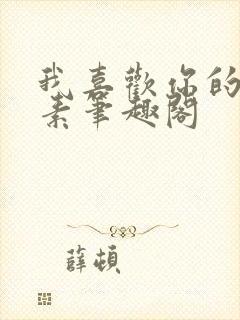 我喜歡你的
素筆趣閣
薛頓